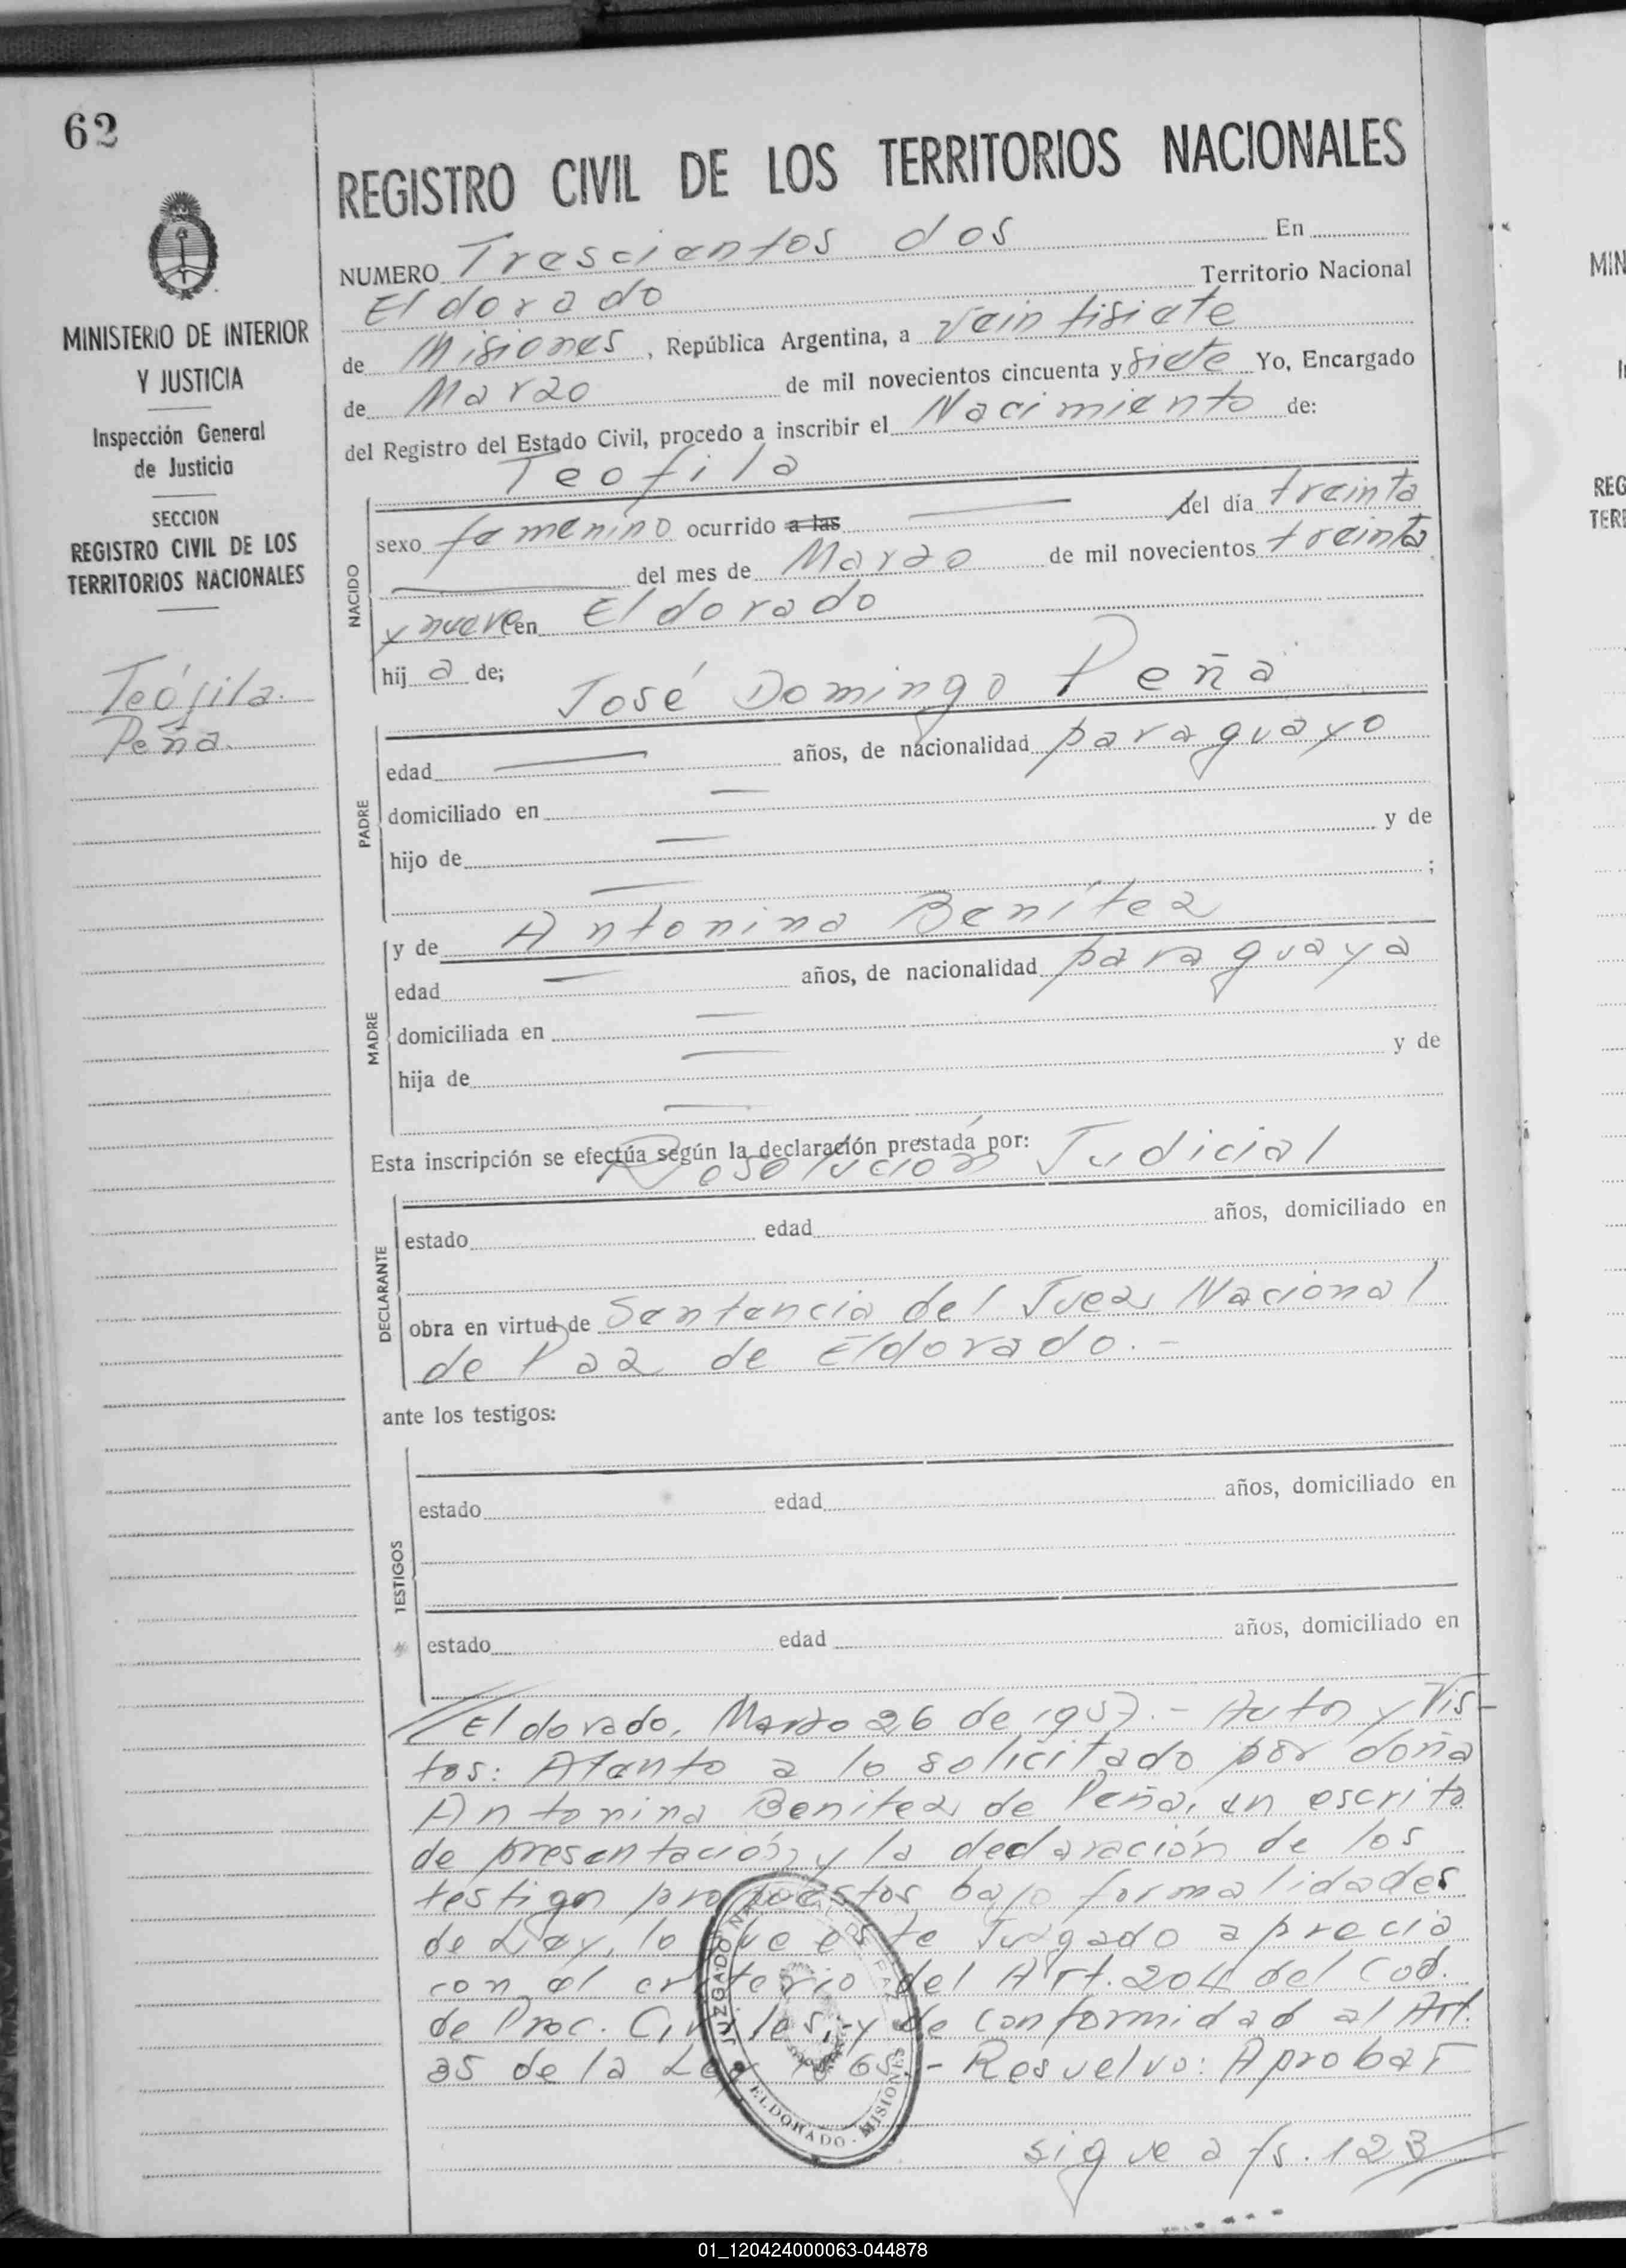 62
MINISTERIO DE INTERIOR
Y JUSTICIA
Inspección General
de Justicia
SECCION
REGISTRO CIVIL DE LOS
TERRITORIOS NACIONALES
Teófila
Peña
REGISTRO CIVIL DE LOS TERRITORIOS NACIONALES
NUMERO Trescientos dos En
Eldorado Territorio Nacional
de Misiones, República Argentina, a veintisiete
de Marzo de mil novecientos cincuenta y siete Yo, Encargado
del Registro del Estado Civil, procedo a inscribir el Nacimiento de:
Teofila
NACIDO
sexo femenino ocurrido a las del día treinta
del mes de Marzo de mil novecientos treinta
y nueve en Eldorado
hij a de;
José Domingo Peña
PADRE
edad años, de nacionalidad paraguayo
domiciliado en
hijo de y de
;
y de Antonina Benítez
MADRE
edad años, de nacionalidad paraguaya
domiciliada en
hija de y de
Esta inscripción se efectúa según la declaración prestada por:
Resolución Judicial
DECLARANTE
estado edad años, domiciliado en
obra en virtud de Sentencia del Juez Nacional
de Paz de Eldorado.-
ante los testigos:
TESTIGOS
estado edad años, domiciliado en
estado edad años, domiciliado en
//Eldorado, Marzo 26 de 1957.- Autos y Vis-
tos: Atento a lo solicitado por doña
Antonina Benitez de Peña, en escrito
de presentación y la declaración de los
testigos propuestos bajo formalidades
de Ley, lo que este Juzgado aprecia
con el criterio del Art. 204 del Cod.
de Proc. Civiles, y de conformidad al Art.
35 de la Ley 1565.- Resuelvo: Aprobar
JUZGADO NACIONAL DE PAZ
ELDORADO - MISIONES
sigue a fs. 123//
MIN
REG
TERR
01_120424000063-044878